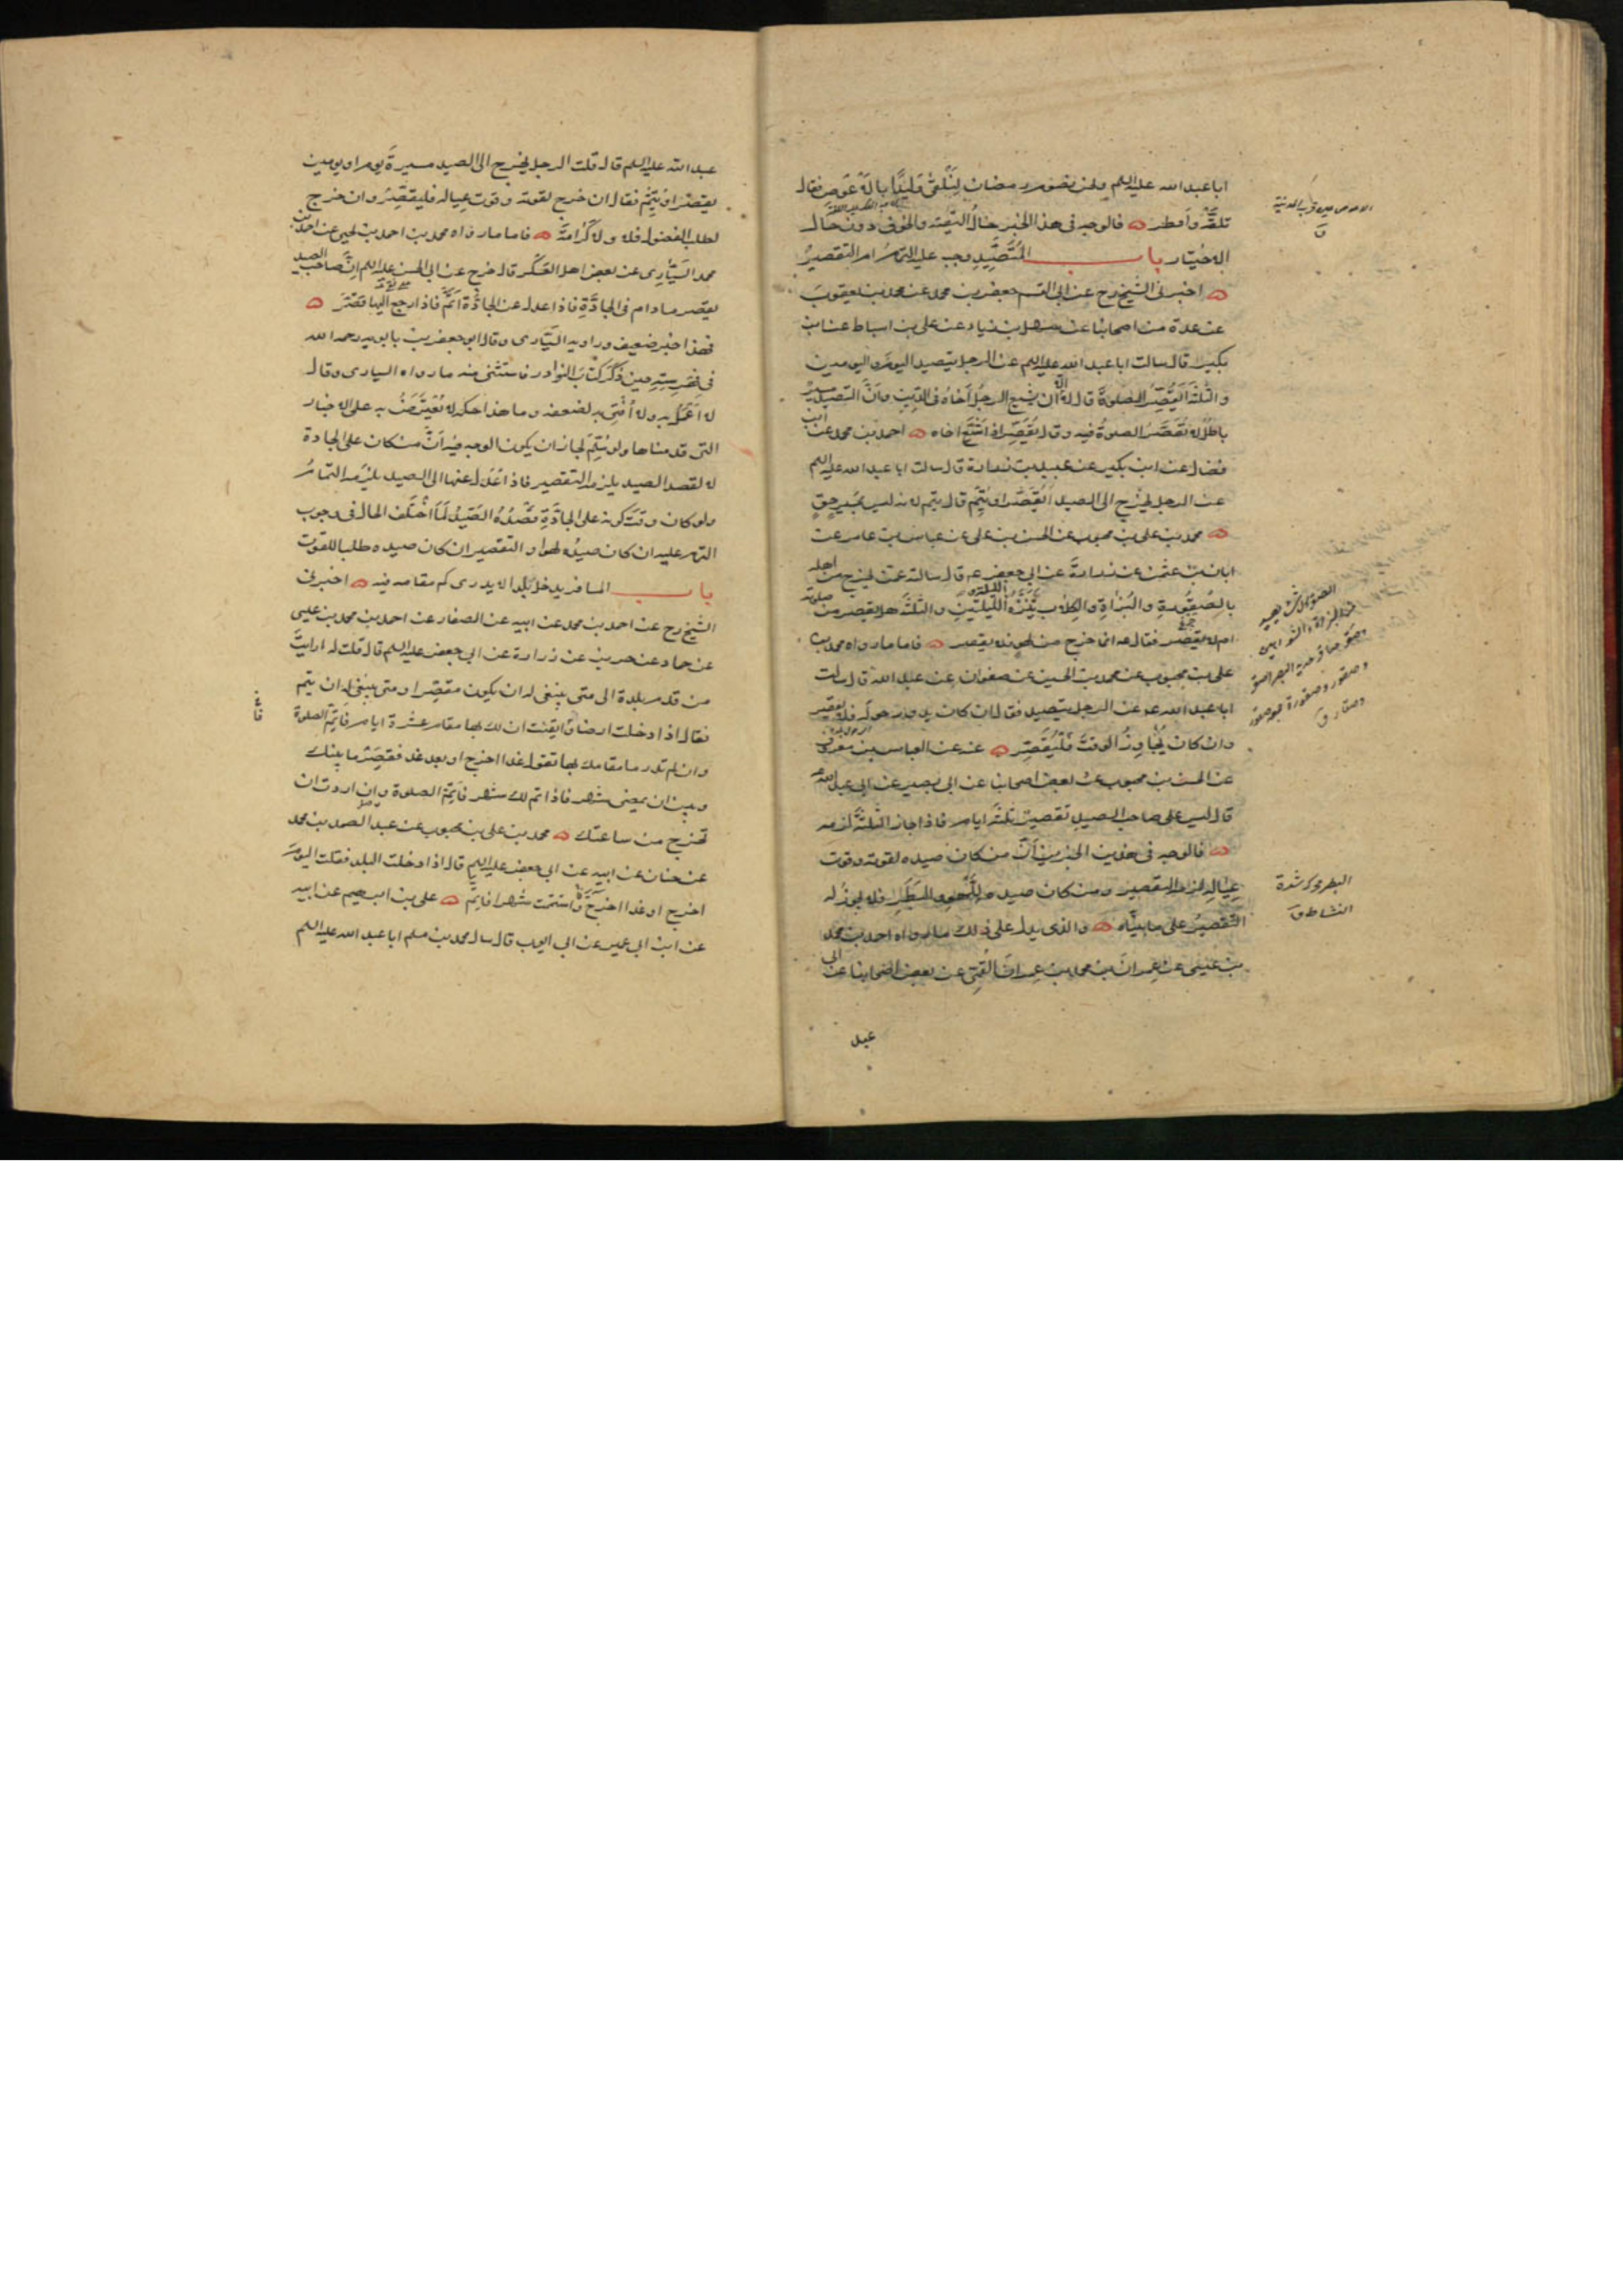 ابا عبد الله عليه السلم ونحن نصوم رمضان لنلقى وليدا بالاعوص فقال
تلقه وافطر فالوجه فى هذا الخبر حال التقية والخوف دون حال
الاختيار باب المتصيد يجب عليه التمام ام التقصير
اخبرنى الشيخ رح عن ابى القسم جعفر بن محمد عن محمد بن يعقوب
عن عدة من اصحابنا عن سهل بن زياد عن على بن اسباط عن ابن
بكير قال سالت ابا عبد الله عليه السلم عن الرجل يتصيد اليوم واليومين
والثلثة ايقصر الصلوة قال لا الا ان يشيع الرجل اخاه فى الدين وان التصيد مسير
باطل لا تقصر الصلوة فيه وقال يقصر اذا شيع اخاه احمد بن محمد عن ابن
فضال عن ابن بكير عن عبيد بن زرارة قال سالت ابا عبد الله عليه السلم
عن الرجل يخرج الى الصيد ايقصر او يتم قال يتم لانه ليس بمسير حق
محمد بن على بن محبوب عن الحسن بن على عن عباس بن عامر عن
ابان بن عثمن عن زرارة عن ابى جعفر ع قال سالته عمن يخرج من اهله
بالصقورة والبزاة والكلاب يتنزه الليلتين والثلثة هل يقصر من صلوته
ام لا يقصر فقال ع انما خرج من لهو لا يقصر فاما ما رواه محمد بن
على بن محبوب عن محمد بن الحسين عن صفوان عن عبد الله قال سالت
ابا عبد الله ع عن الرجل يتصيد فقال ان كان يدور حوله فلا يقصر
وان كان يجاوز الوقت فليقصر عنه عن العباس بن معروف
عن الحسن بن محبوب عن بعض اصحابنا عن ابى بصير عن ابى عبد الله ع
قال ليس على صاحب الصيد تقصير ثلثة ايام فاذا جاز الثلثة لزمه
فالوجه فى هذين الخبرين ان من كان صيده لقوته وقوت
عياله لزمه التقصير ومن كان صيده للهو والبطر فلا يجوز له
التقصير على ما بيناه والذى يدل على ذلك ما رواه احمد بن محمد
بن عيسى عن عمران بن محمد بن عمران القمى عن بعض اصحابنا عن ابى
عبد
البطر محركة شدة
النشاط ق
عبد الله عليه السلم قال قلت الرجل يخرج الى الصيد مسيرة يوم او يومين
يقصر او يتم فقال ان خرج لقوته وقوت عياله فليقصر وان خرج
لطلب الفضول فلا ولا كرامة فاما ما رواه محمد بن احمد بن يحيى عن احمد بن
محمد السيارى عن بعض اهل العسكر قال خرج عن ابى الحسن عليه السلم ان صاحب الصيد
يقصر ما دام فى الجادة فاذا عدل عن الجادة اتم فاذا رجع اليها قصر
فهذا خبر ضعيف وراويه السيارى وقال ابو جعفر بن بابويه رحمه الله
فى فهرسته حين ذكر كتاب النوادر فاستثنى منه ما رواه السيارى وقال
لا اعمل به ولا افتى به لضعفه وما هذا حكمه لا يعترض به على الاخبار
التى قدمناها ولو سلم لجاز ان يكون الوجه فيه ان من كان على الجادة
لا لقصد الصيد يلزمه التقصير فاذا عدل عنها الى الصيد يلزمه التمام
ولو كان وقت كونه على الجادة قصده الصيد لما اختلف الحال فى وجوب
التمام عليه ان كان صيده لهوا و التقصير ان كان صيده طلبا للقوت
باب المسافر يدخل بلدا لا يدرى كم مقامه فيه اخبرنى
الشيخ رح عن احمد بن محمد عن ابيه عن الصفار عن احمد بن محمد بن عيسى
عن حماد عن حريز عن زرارة عن ابى جعفر عليه السلم قال قلت له ارايت
من قدم بلدة الى متى ينبغى له ان يكون مقصرا ومتى ينبغى له ان يتم
فقال اذا دخلت ارضا فايقنت ان لك بها مقام عشرة ايام فاتم الصلوة
وان لم تدر ما مقامك بها تقول غدا اخرج او بعد غد فقصر ما بينك
وبين ان يمضى شهر فاذا تم لك شهر فاتم الصلوة وان اردت ان
تخرج من ساعتك محمد بن على بن محبوب عن عبد الصمد بن محمد
عن حنان عن ابيه عن ابى جعفر عليه السلم قال اذا دخلت البلد فقلت اليوم
اخرج او غدا اخرج فاستتمت شهرا فاتم على بن ابرهيم عن ابيه
عن ابن ابى عمير عن ابى ايوب قال سال محمد بن مسلم ابا عبد الله عليه السلم